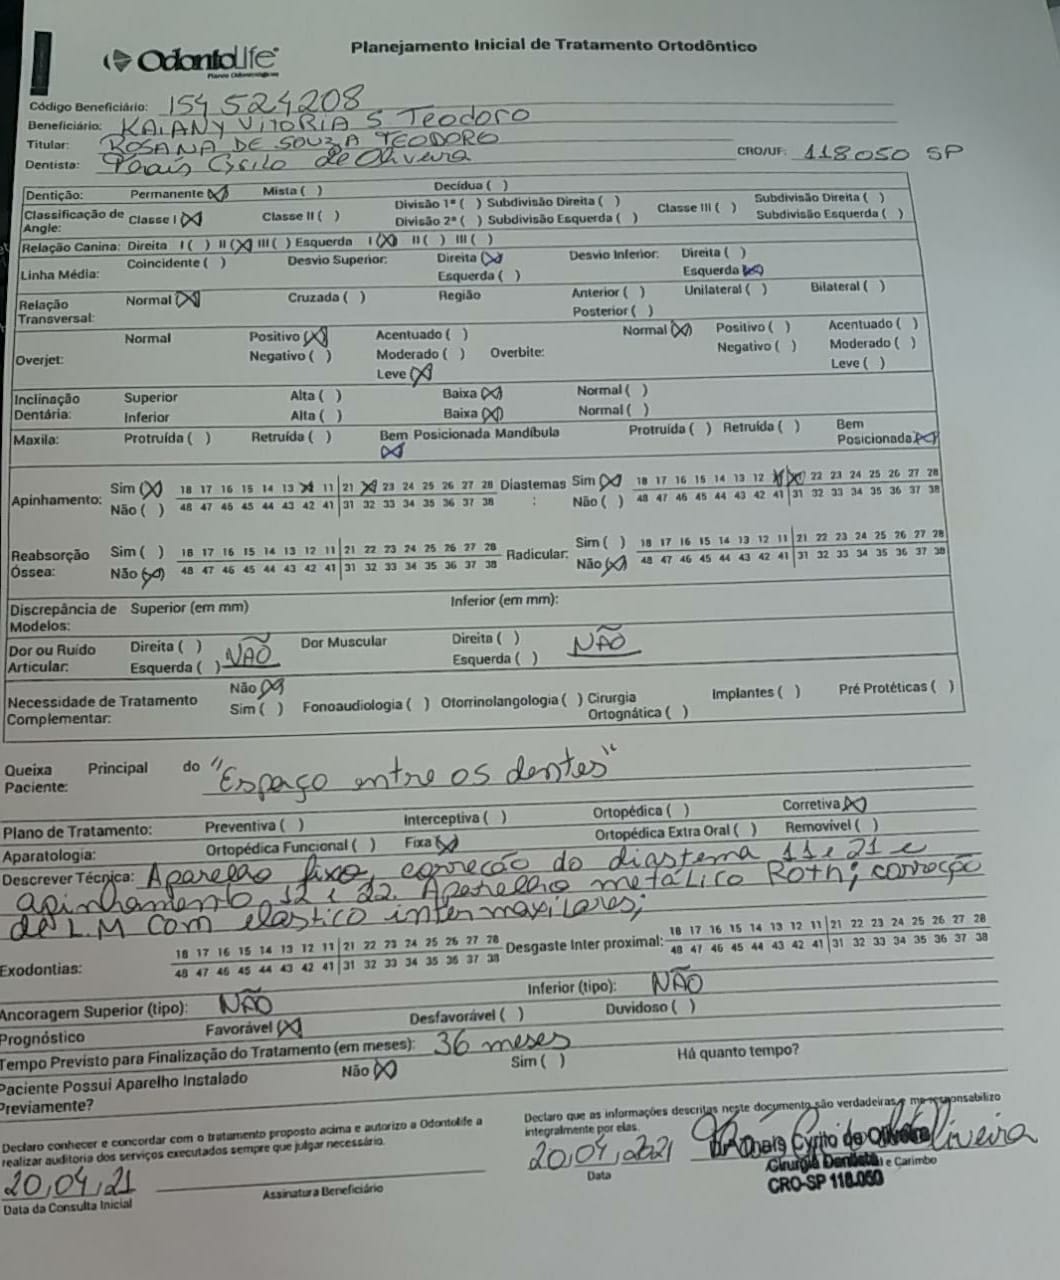 OdontoLife
Planos Odontológicos
Planejamento Inicial de Tratamento Ortodôntico
Código Beneficiário: 154524208
Beneficiário: KAIANY VITORIA S Teodoro
Titular: ROSANA DE SOUZA TEODORO
Dentista: Thaís Cyrilo de Oliveira CRO/UF: 118050 SP
Dentição: Permanente (X) Mista ( ) Decídua ( )
Classificação de Angle: Classe I (X) Classe II ( ) Divisão 1ª ( ) Subdivisão Direita ( ) Classe III ( ) Subdivisão Direita ( )
Divisão 2ª ( ) Subdivisão Esquerda ( ) Subdivisão Esquerda ( )
Relação Canina: Direita I ( ) II (X) III ( ) Esquerda I (X) II ( ) III ( )
Linha Média: Coincidente ( ) Desvio Superior: Direita (X) Desvio Inferior: Direita ( )
Esquerda ( ) Esquerda (X)
Relação Transversal: Normal (X) Cruzada ( ) Região Anterior ( ) Unilateral ( ) Bilateral ( )
Posterior ( )
Overjet: Normal Positivo (X) Acentuado ( ) Overbite: Normal (X) Positivo ( ) Acentuado ( )
Negativo ( ) Moderado ( ) Negativo ( ) Moderado ( )
Leve (X) Leve ( )
Inclinação Dentária: Superior Alta ( ) Baixa (X) Normal ( )
Inferior Alta ( ) Baixa (X) Normal ( )
Maxila: Protruída ( ) Retruída ( ) Bem Posicionada (X) Mandíbula Protruída ( ) Retruída ( ) Bem Posicionada (X)
Apinhamento: Sim (X) 18 17 16 15 14 13 X 11 21 X 23 24 25 26 27 28 Diastemas: Sim (X) 18 17 16 15 14 13 12 X X 22 23 24 25 26 27 28
Não ( ) 48 47 46 45 44 43 42 41 31 32 33 34 35 36 37 38 Não ( ) 48 47 46 45 44 43 42 41 31 32 33 34 35 36 37 38
Reabsorção Óssea: Sim ( ) 18 17 16 15 14 13 12 11 21 22 23 24 25 26 27 28 Radicular: Sim ( ) 18 17 16 15 14 13 12 11 21 22 23 24 25 26 27 28
Não (X) 48 47 46 45 44 43 42 41 31 32 33 34 35 36 37 38 Não (X) 48 47 46 45 44 43 42 41 31 32 33 34 35 36 37 38
Discrepância de Modelos: Superior (em mm) Inferior (em mm):
Dor ou Ruído Articular: Direita ( ) NÃO Dor Muscular Direita ( ) NÃO
Esquerda ( ) Esquerda ( )
Necessidade de Tratamento Complementar: Não (X)
Sim ( ) Fonoaudiologia ( ) Otorrinolangologia ( ) Cirurgia Ortognática ( ) Implantes ( ) Pré Protéticas ( )
Queixa Principal do Paciente: "Espaço entre os dentes"
Plano de Tratamento: Preventiva ( ) Interceptiva ( ) Ortopédica ( ) Corretiva (X)
Aparatologia: Ortopédica Funcional ( ) Fixa (X) Ortopédica Extra Oral ( ) Removível ( )
Descrever Técnica: Aparelho fixo, correção do diastema 11 e 21 e
apinhamento 12 e 22. Aparelho metálico Roth; correção
de L.M com elastico intermaxilares;
Exodontias: 18 17 16 15 14 13 12 11 21 22 23 24 25 26 27 28 Desgaste Inter proximal: 18 17 16 15 14 13 12 11 21 22 23 24 25 26 27 28
48 47 46 45 44 43 42 41 31 32 33 34 35 36 37 38 48 47 46 45 44 43 42 41 31 32 33 34 35 36 37 38
Ancoragem Superior (tipo): NÃO Inferior (tipo): NÃO
Prognóstico Favorável (X) Desfavorável ( ) Duvidoso ( )
Tempo Previsto para Finalização do Tratamento (em meses): 36 meses
Paciente Possui Aparelho Instalado Previamente? Não (X) Sim ( ) Há quanto tempo?
Declaro conhecer e concordar com o tratamento proposto acima e autorizo a Odontolife a
realizar auditoria dos serviços executados sempre que julgar necessário.
Declaro que as informações descritas neste documento são verdadeiras e me responsabilizo
integralmente por elas.
20,04,21
Data da Consulta Inicial
Assinatura Beneficiário
20,04,2021
Data
Dra Thais Cyrilo de Oliveira
Cirurgiã Dentista
e Carimbo
CRO-SP 118.050